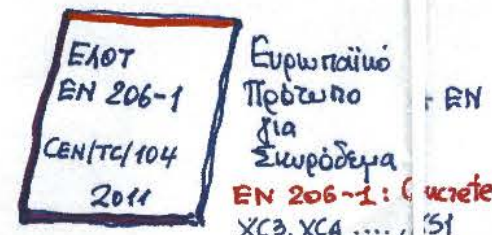 ΕΛΟΤ
EN 206-1
CEN/TC/104
2011
Ευρωπαϊκό
Πρότυπο
για
Σκυρόδεμα
EN
EN 206-1:
XC3, XC4 ...., XS1